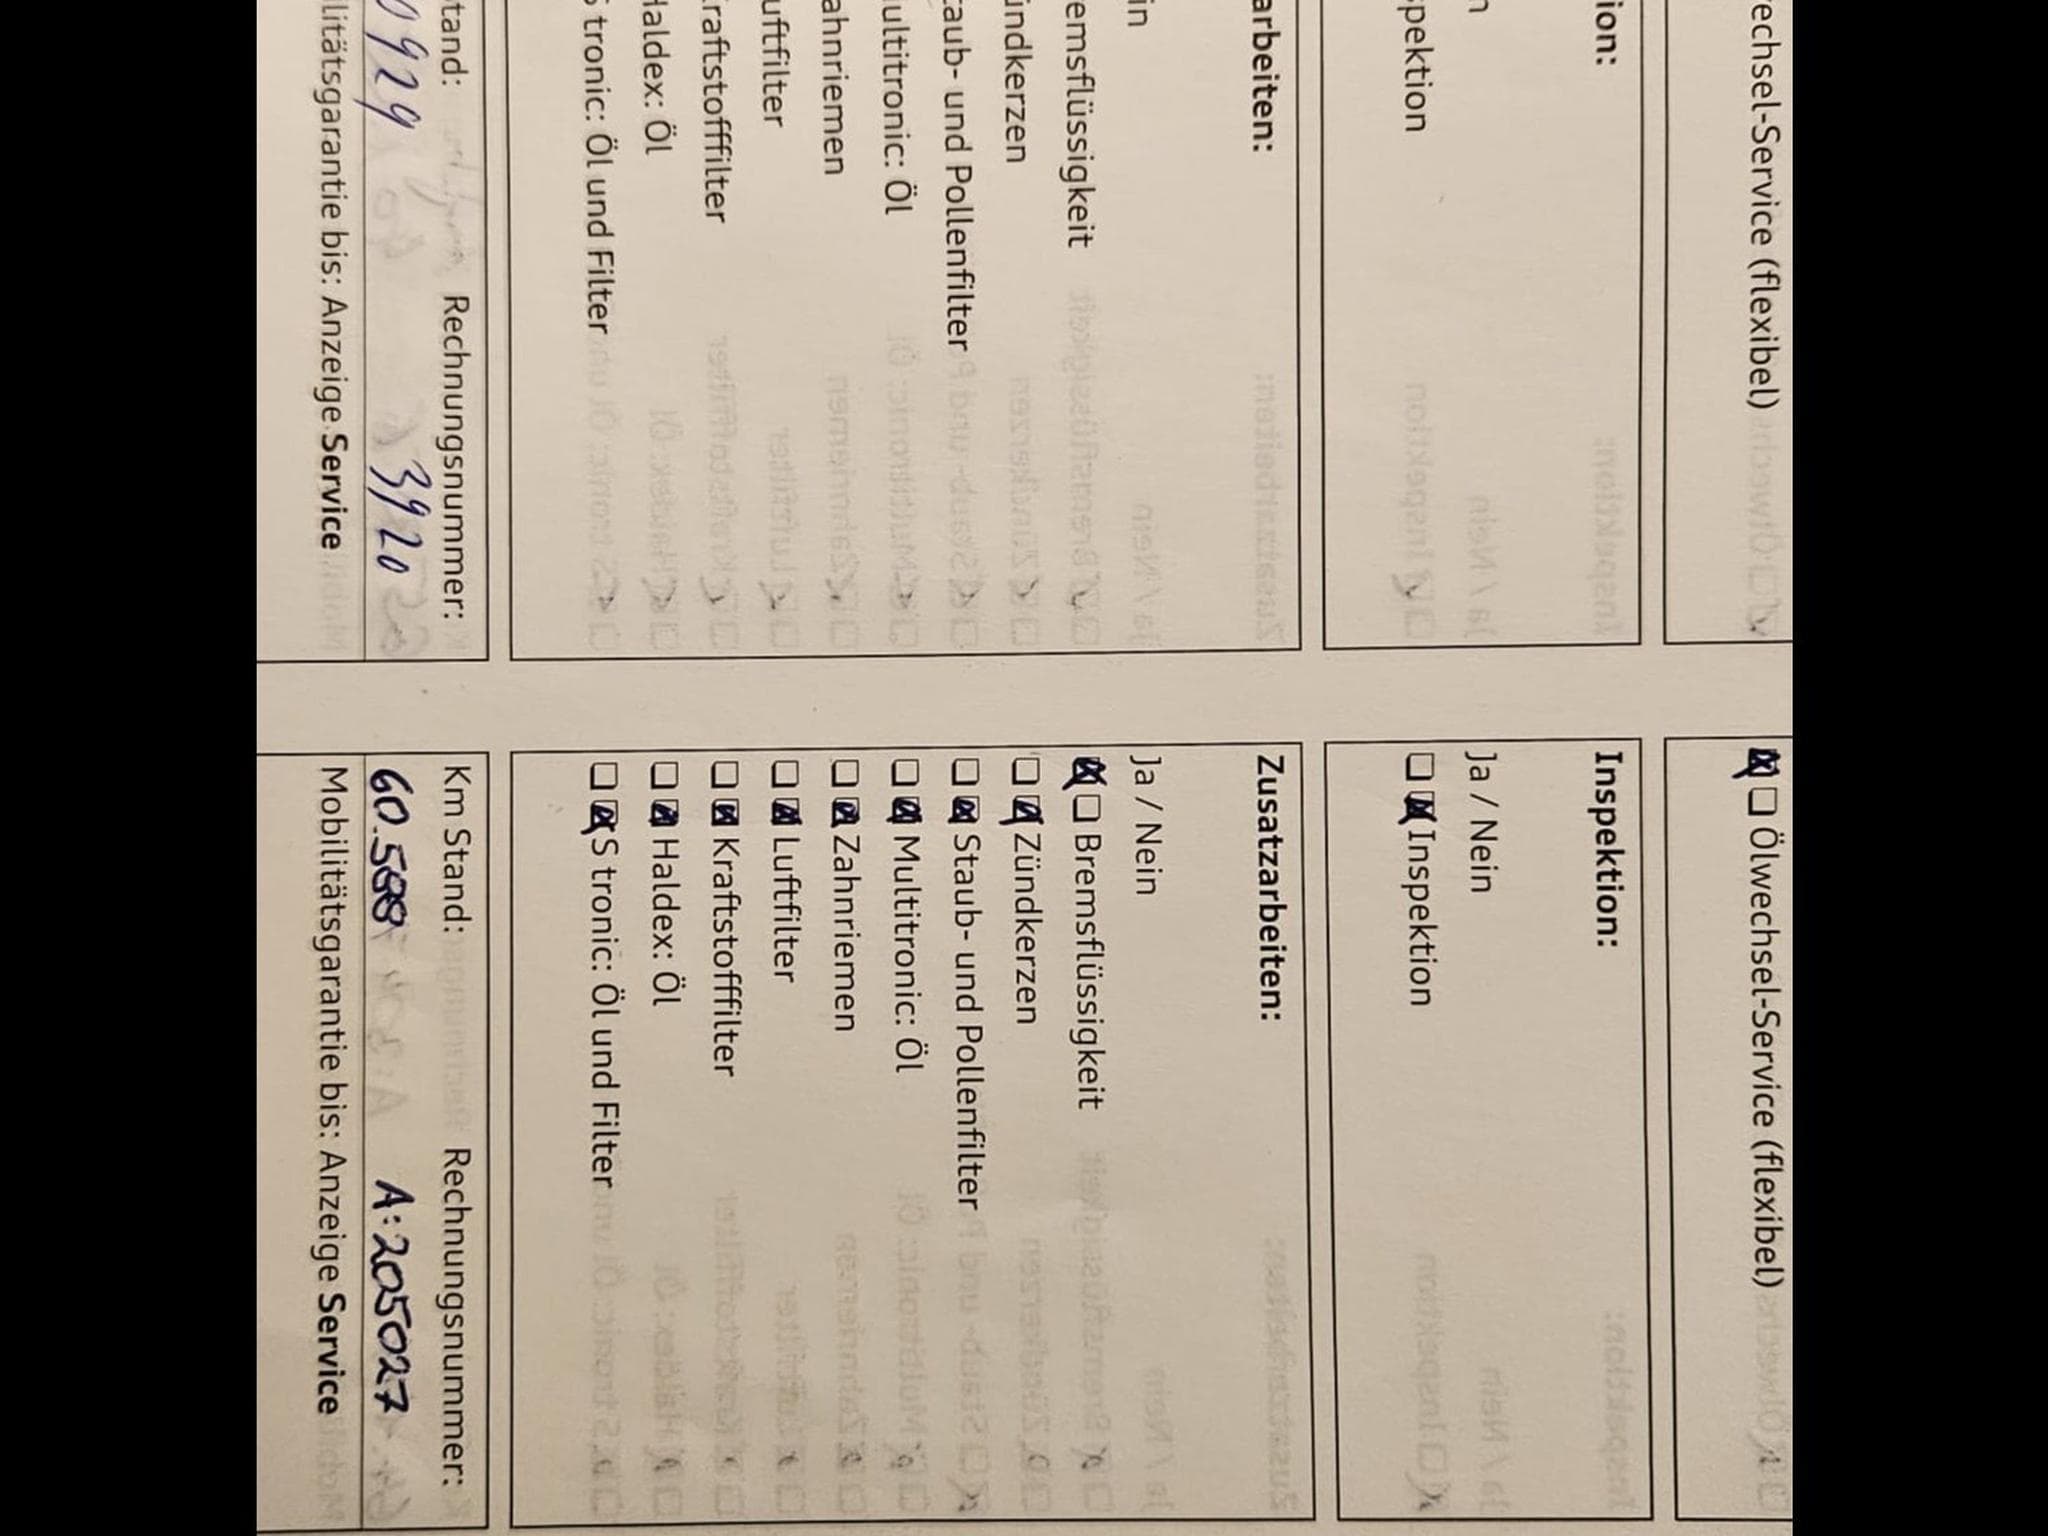 echsel-Service (flexibel)
ion:
n
spektion
arbeiten:
in
emsflüssigkeit
ündkerzen
taub- und Pollenfilter
ultitronic: Öl
ahnriemen
uftfilter
raftstofffilter
Haldex: Öl
S tronic: Öl und Filter
tand: Rechnungsnummer:
0929 3920
ilitätsgarantie bis: Anzeige Service
Ölwechsel-Service (flexibel)
Inspektion:
Ja / Nein
Inspektion
Zusatzarbeiten:
Ja / Nein
Bremsflüssigkeit
Zündkerzen
Staub- und Pollenfilter
Multitronic: Öl
Zahnriemen
Luftfilter
Kraftstofffilter
Haldex: Öl
S tronic: Öl und Filter
Km Stand: Rechnungsnummer:
60.588 A:205027
Mobilitätsgarantie bis: Anzeige Service